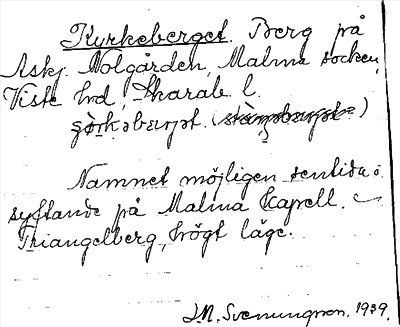 Kyrkeberget. Berg på
Askj. Nolgården, Malma socken,
Viste hd, Skarab. l.

Namnet möjligen sentida o.
syftande på Malma kapell.
Triangelberg, högt läge.
J.M. Svenungson. 1939.